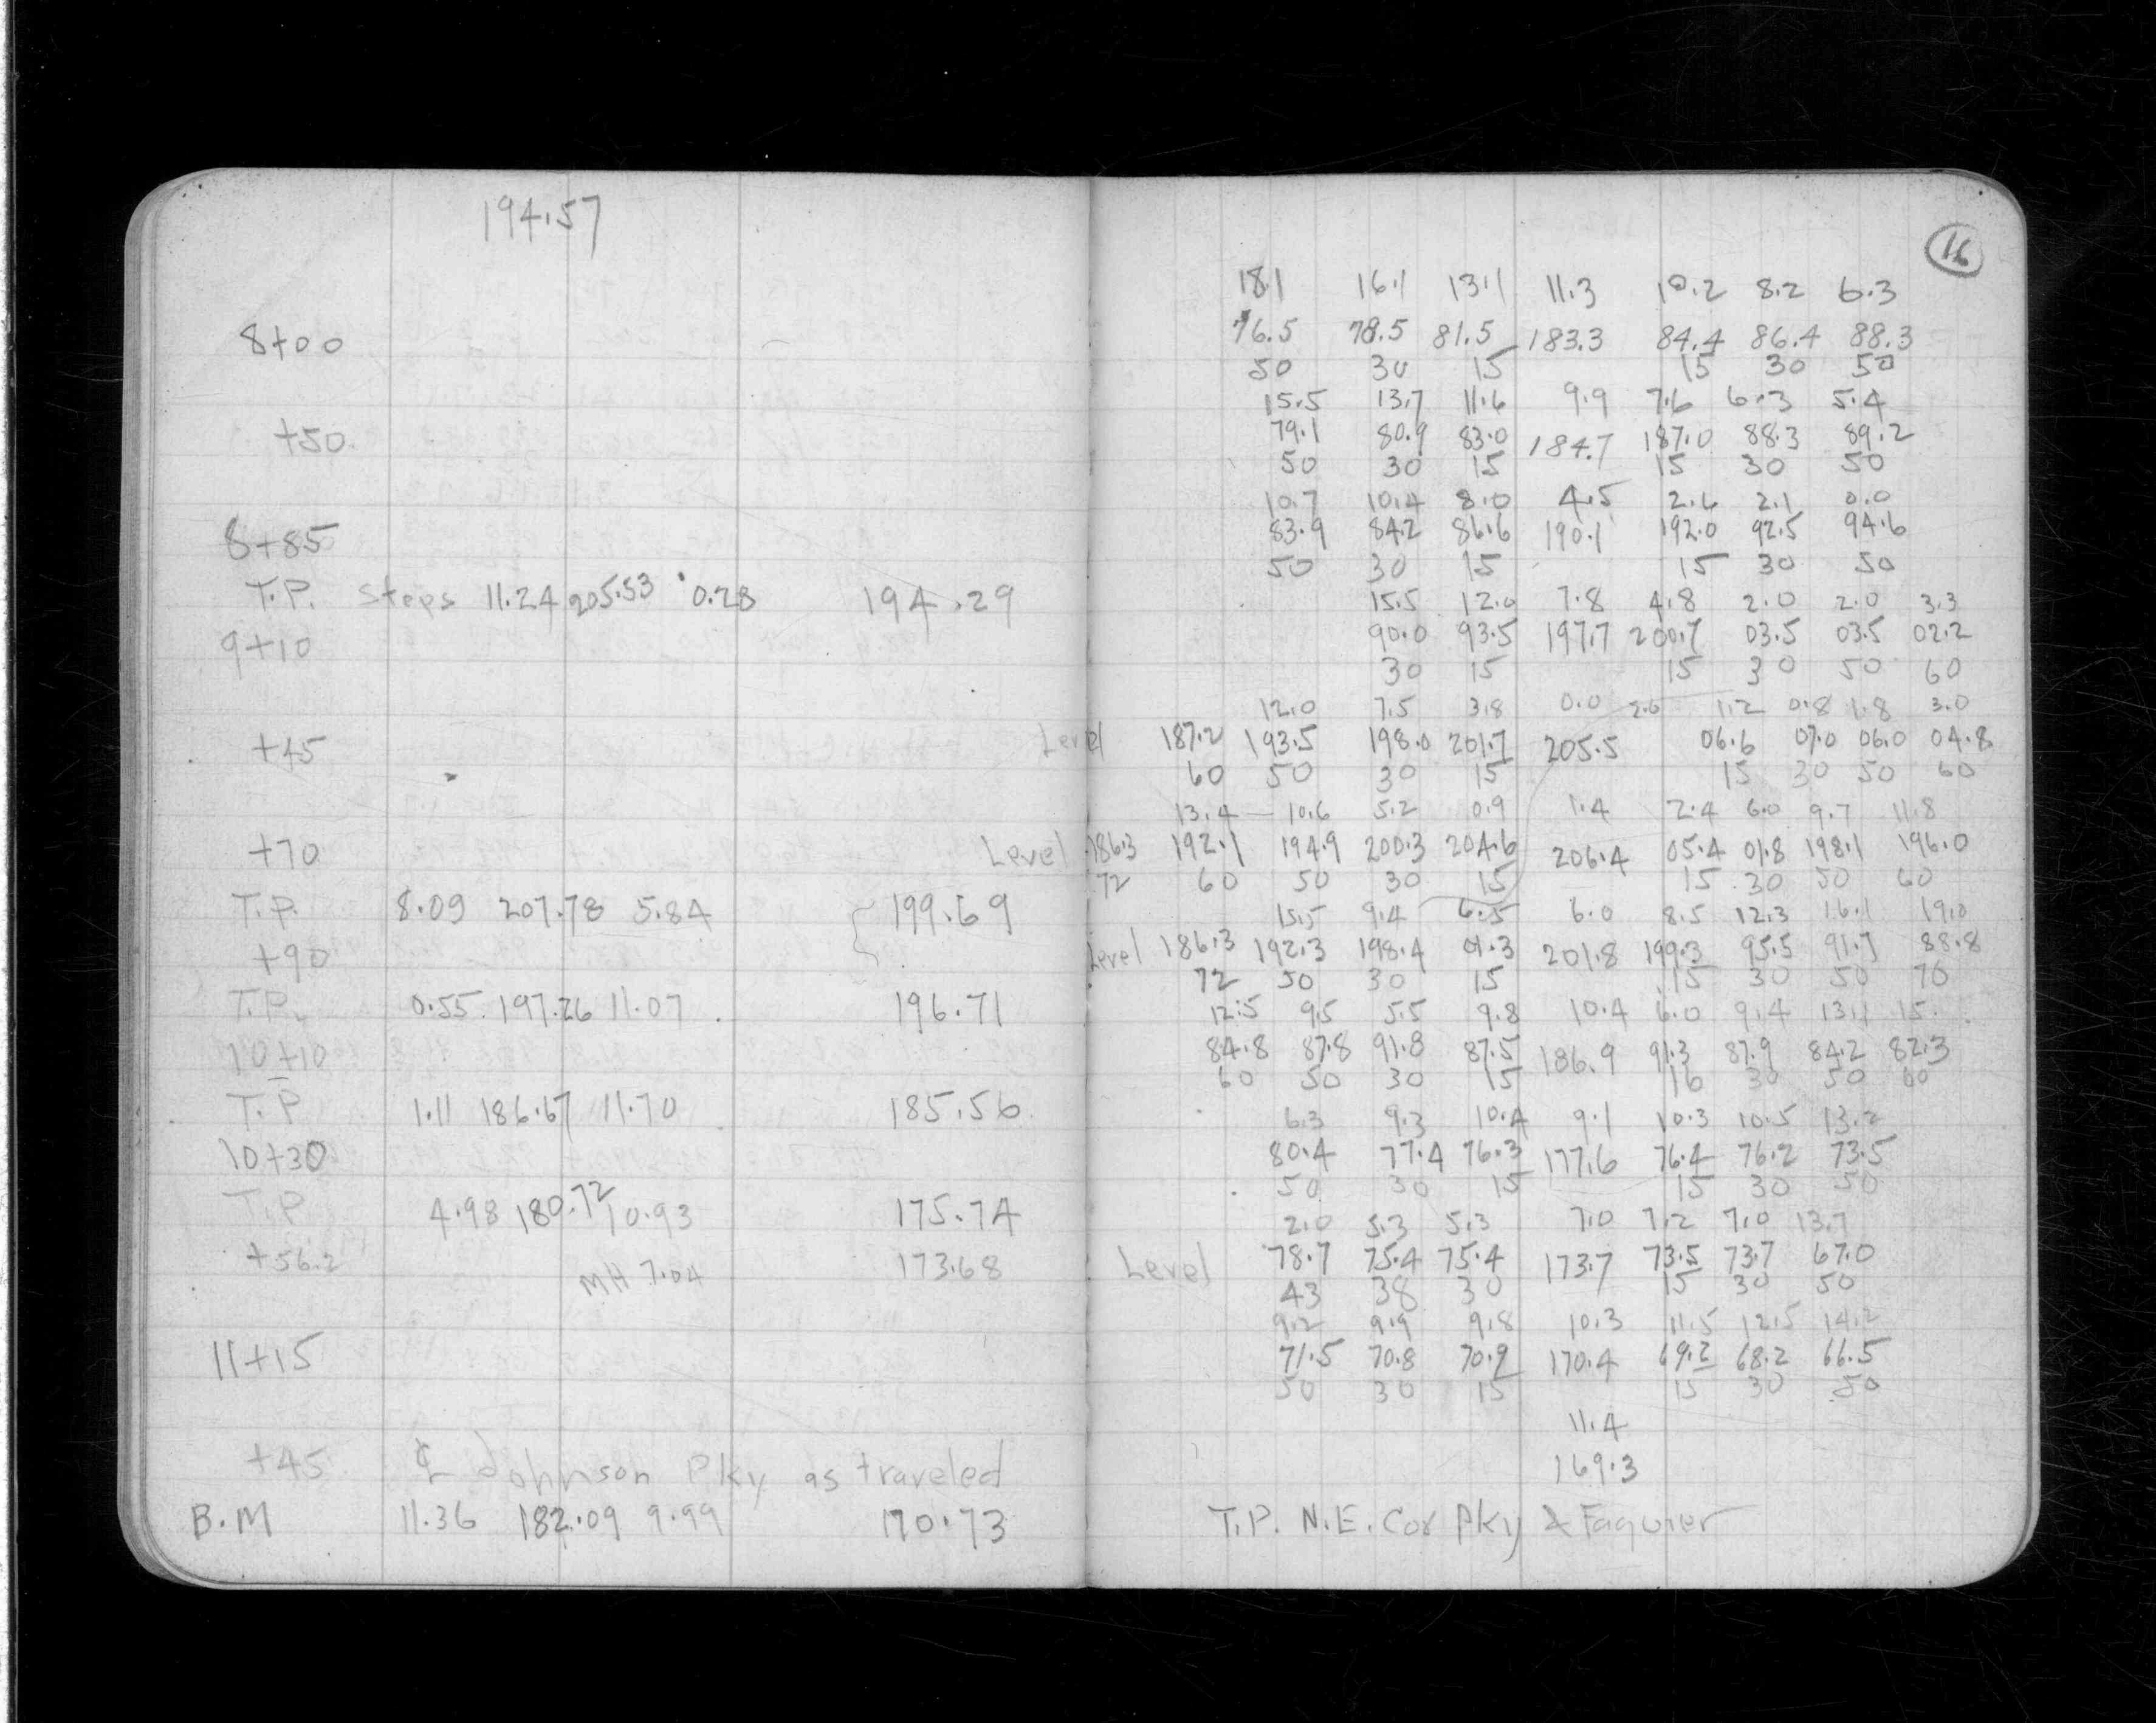 194.57
8+00
+50
8+85
T.P. Steps 11.24 205.53 0.28 194.29
9+10
+45
+70
T.P. 8.09 207.78 5.84 199.69
+90
T.P. 0.55 197.26 11.07 196.71
10+10
T.P 1.11 186.67 11.70 185.56
10+30
T.P 4.98 180.72 10.93 175.74
+56.2 MH 7.04 173.68
11+15
+45 ℄ Johnson Pky as traveled
B.M 11.36 182.09 9.99 170.73
16
18.1 16.1 13.1 11.3 10.2 8.2 6.3
76.5 78.5 81.5 183.3 84.4 86.4 88.3
50 30 15 15 30 50
15.5 13.7 11.6 9.9 7.6 6.3 5.4
79.1 80.9 83.0 184.7 187.0 88.3 89.2
50 30 15 15 30 50
10.7 10.4 8.0 4.5 2.6 2.1 0.0
83.9 84.2 86.6 190.1 192.0 92.5 94.6
50 30 15 15 30 50
15.5 12.0 7.8 4.8 2.0 2.0 3.3
90.0 93.5 197.7 200.7 03.5 03.5 02.2
30 15 15 30 50 60
12.0 7.5 3.8 0.0 2.6 1.2 0.8 1.8 3.0
Level 187.2 193.5 198.0 201.7 205.5 06.6 07.0 06.0 04.8
60 50 30 15 15 30 50 60
13.4 10.6 5.2 0.9 1.4 2.4 6.0 9.7 11.8
Level 186.3 192.1 194.9 200.3 204.6 206.4 05.4 01.8 198.1 196.0
72 60 50 30 15 15 30 50 60
15.5 9.4 6.5 6.0 8.5 12.3 16.1 19.0
Level 186.3 192.3 198.4 01.3 201.8 199.3 95.5 91.7 88.8
72 50 30 15 15 30 50 70
12.5 9.5 5.5 9.8 10.4 6.0 9.4 13.1 15.
84.8 87.8 91.8 87.5 186.9 91.3 87.9 84.2 82.3
60 50 30 15 16 30 50 60
6.3 9.3 10.4 9.1 10.3 10.5 13.2
80.4 77.4 76.3 177.6 76.4 76.2 73.5
50 30 15 15 30 50
2.0 5.3 5.3 7.0 7.2 7.0 13.7
Level 78.7 75.4 75.4 173.7 73.5 73.7 67.0
43 38 30 15 30 50
9.2 9.9 9.8 10.3 11.5 12.5 14.2
71.5 70.8 70.9 170.4 69.2 68.2 66.5
50 30 15 15 30 50
11.4
169.3
T.P. N.E. Cor Pky & Faquier